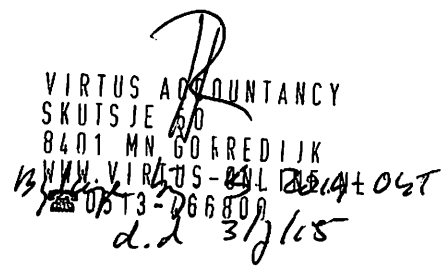 VIRTUS ACCOUNTANCY
SKUTSJE 60
8401 MN GORREDIJK
WWW.VIRTUS-ONLINE.NL
☎ 0513-466800
d.d 3/7/15